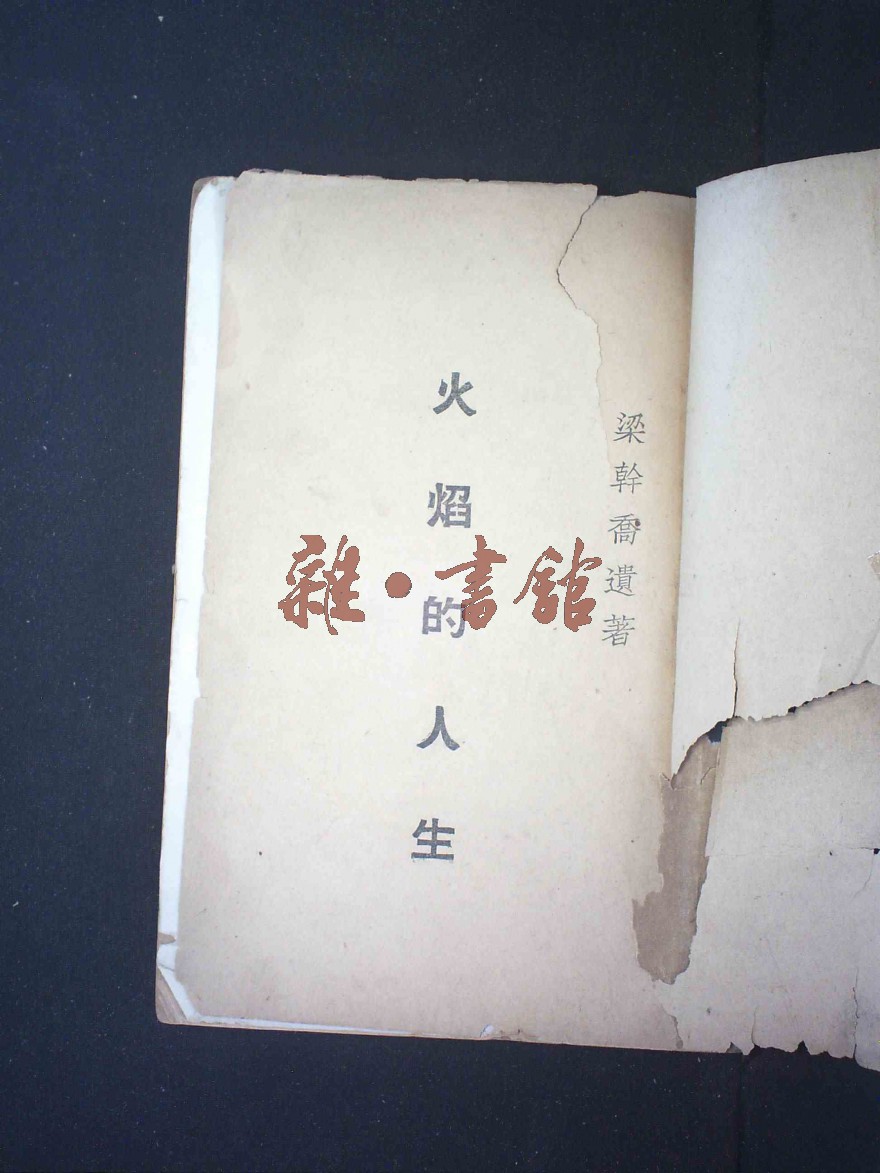 梁幹喬遺著
火焰的人生
雜·書館